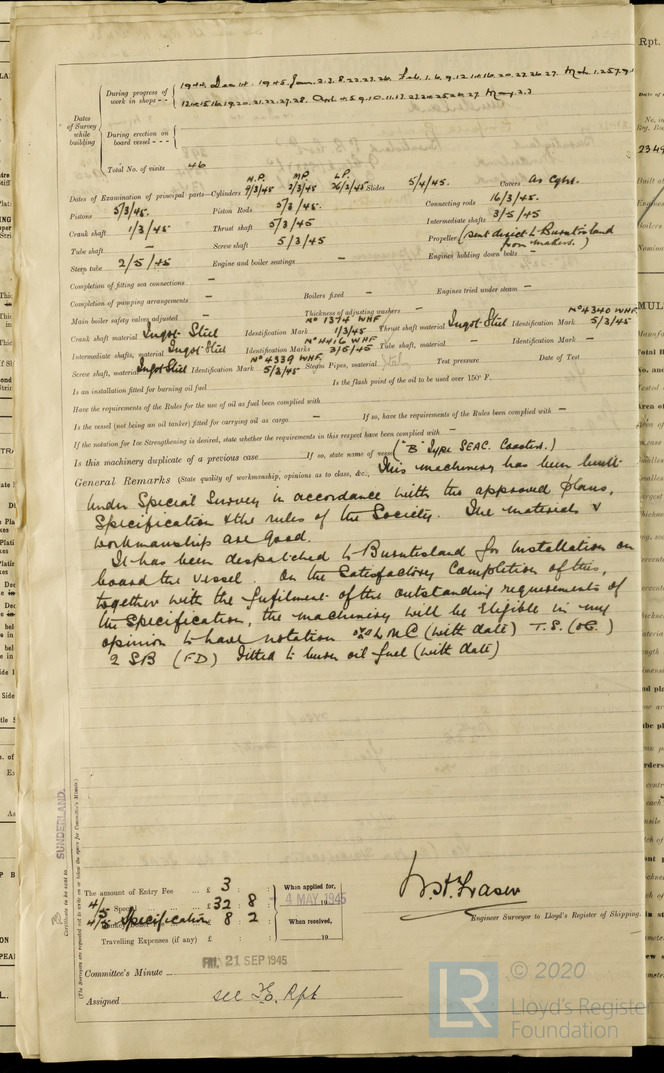 Dates of Survey while building
During progress of work in shops - -
1944. Dec 14. 1945. Jan. 2. 3. 8. 22. 23. 26. Feb. 1. 6. 9. 12. 14. 16. 20. 22. 26. 27. Mch. 1. 2. 5. 7. 9.
12. 14. 15. 16. 19. 20. 21. 22. 27. 28. Apl. 4. 5. 9. 10. 11. 17. May. 2. 3
During erection on board vessel - - -
Total No. of visits 46
H.P. M.P. L.P.
Dates of Examination of principal parts—Cylinders 9/3/45 2/3/45 26/3/45 Slides 5/4/45. Covers As Cyls.
Pistons 5/3/45. Piston Rods 5/3/45. Connecting rods 16/3/45.
Crank shaft 1/3/45 Thrust shaft 5/3/45 Intermediate shafts 3/5/45
Tube shaft — Screw shaft 5/3/45 Propeller (sent direct to Burntisland from makers.)
Stern tube 2/5/45 Engine and boiler seatings — Engines holding down bolts —
Completion of fitting sea connections —
Completion of pumping arrangements — Boilers fixed — Engines tried under steam —
Main boiler safety valves adjusted Thickness of adjusting washers —
Crank shaft material Ingot Steel Identification Mark No 1374 WHF 1/3/45 Thrust shaft material Ingot Steel Identification Mark No 4340 WHF. 5/3/45
Intermediate shafts, material Ingot Steel Identification Marks No 4416 WHF 3/5/45 Tube shaft, material — Identification Mark —
Screw shaft, material Ingot Steel Identification Mark No 4339 WHF. 5/3/45 Steam Pipes, material Test pressure Date of Test
Is an installation fitted for burning oil fuel Is the flash point of the oil to be used over 150° F.
Have the requirements of the Rules for the use of oil as fuel been complied with
Is the vessel (not being an oil tanker) fitted for carrying oil as cargo — If so, have the requirements of the Rules been complied with —
If the notation for Ice Strengthening is desired, state whether the requirements in this respect have been complied with —
Is this machinery duplicate of a previous case If so, state name of vessel ("B" Type SEAC. Coasters.)
General Remarks (State quality of workmanship, opinions as to class, &c., This machinery has been built
under Special Survey in accordance with the approved plans,
Specification & the rules of the Society. The materials &
workmanship are Good.
It has been despatched to Burntisland for Installation on
board the vessel. On the Satisfactory Completion of this,
together with the fulfilment of the outstanding requirements of
the Specification, the machinery will be Eligible in my
opinion to have notation LMC (with date) T.S. (OG.)
2 SB (FD) Fitted to burn oil fuel (with date)
SUNDERLAND.
Certificate to be sent to
(The Surveyors are requested not to write on or below the space for Committee's Minute.)
The amount of Entry Fee ... £ 3 : :
4/5 Special ... £ 32 : 8 :
4/5 Specification 8 : 2
Travelling Expenses (if any) £ : :
When applied for,
4 MAY 1945
When received,
19
W.H. Fraser
Engineer Surveyor to Lloyd's Register of Shipping.
Committee's Minute
FRI. 21 SEP 1945
Assigned see F.E. Rpt
LR © 2020
Lloyd's Register
Foundation
Rpt.